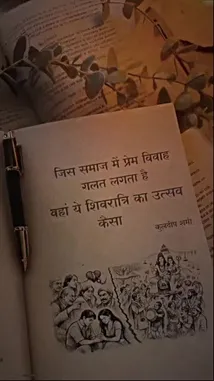 जिस समाज में प्रेम विवाह
गलत लगता है
वहां ये शिवरात्रि का उत्सव
कैसा